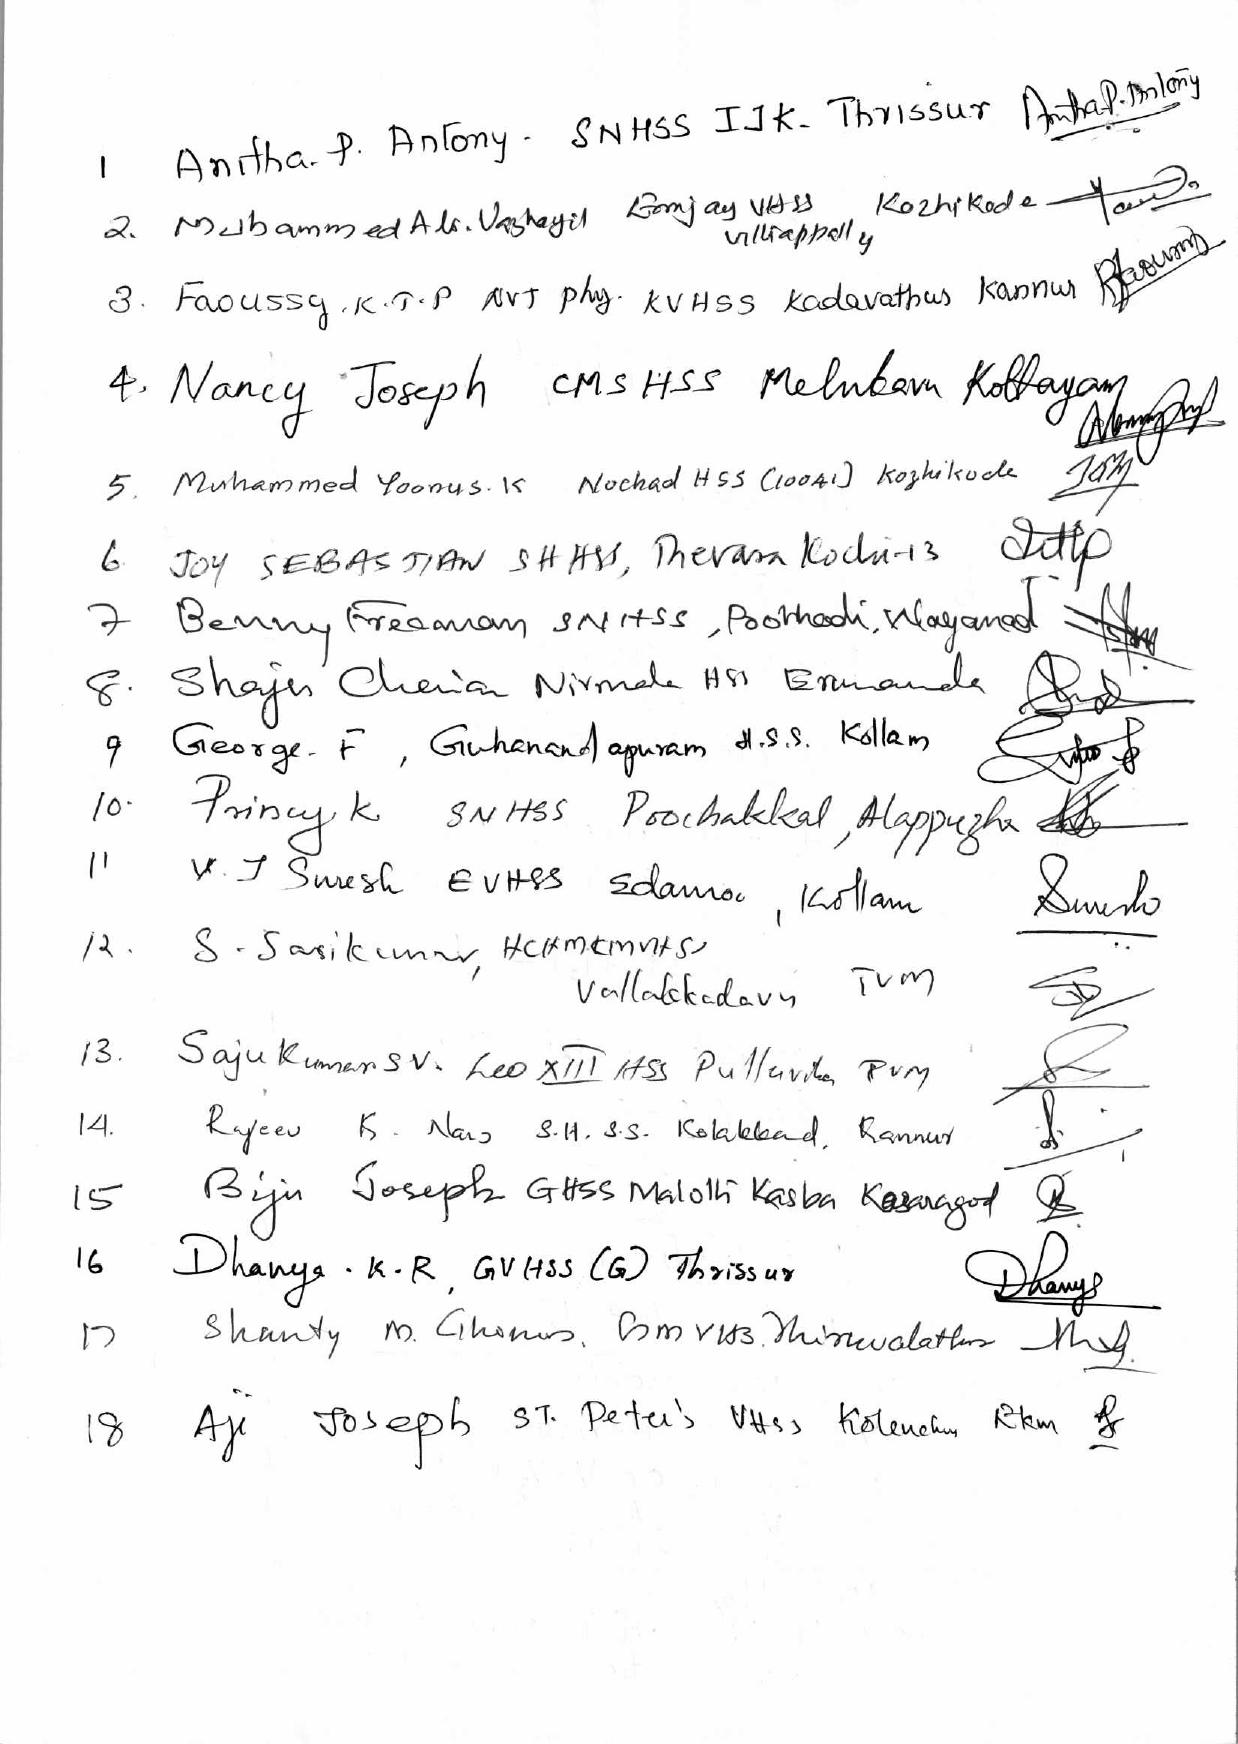 1 Anitha. P. Antony - SNHSS IJK. Thrissur Anitha P. Antony
2. Muhammed Ali. Vazhayil VHSS Kozhikode
Villiappally
3. Faoussy. K.T.P NVT phy. KVHSS Kadavathur Kannur
4. Nancy Joseph CMS HSS Melukavu Kottayam
5. Muhammed Yoonus. K Nochad HSS (10041) Kozhikode
6 JOY SEBASTIAN SHHSS, Thevara Kochi-13
7 Benny Freeman SNHSS, Poothadi, Wayanad
8. Shaju Cherian Nirmala HSS
9 George. F, Guhanandapuram H.S.S. Kollam
10. Princy K SNHSS Poochakkal, Alappuzha
11 V. J Suresh EVHSS Kollam Suresh
12. S. Sasikumar,
Vallakkadavu TVM
13. Saju Kumar S V. Leo XIII HSS Pulluvila TVM
14. Rajeev K. S.H. S.S. Kannur
15 Biju Joseph GHSS Maloth Kasba Kasaragod
16 Dhanya. K. R, GVHSS (G) Thrissur Dhanya
17 Shanty M.
18 Aji Joseph ST. Peter's VHSS